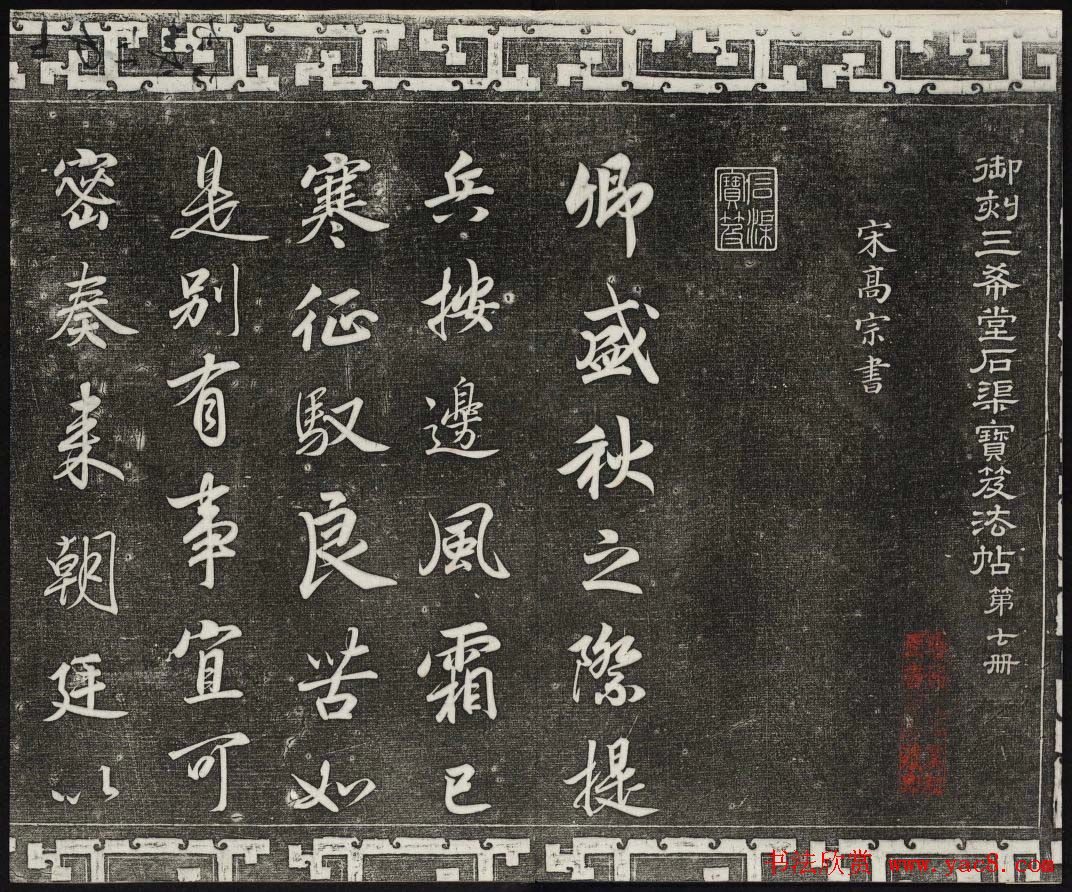 御刻三希堂石渠寶笈法帖第七冊
宋髙宗書
石渠寶笈
卿盛秋之際提
兵按邊風霜已
寒征馭良苦如
是別有事宜可
密奏来朝廷以
书法欣赏 www.yac8.com